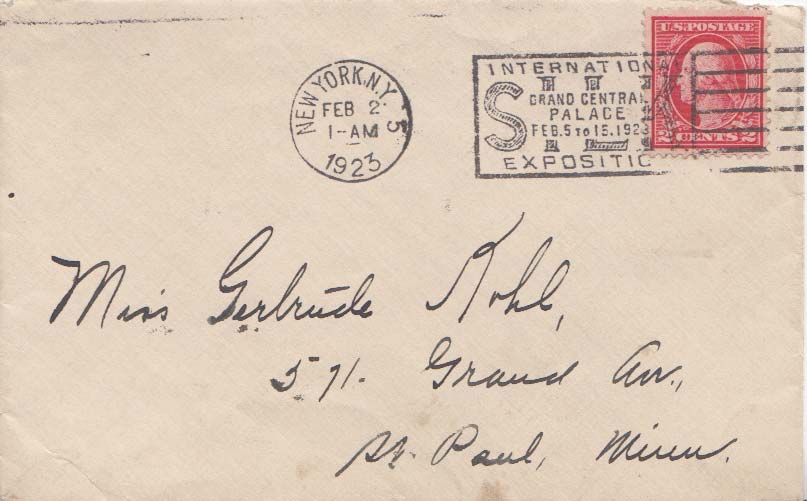 NEW YORK, N.Y. 5
FEB 2
1-AM
1923
INTERNATIONA
SIL
GRAND CENTRAL
PALACE
FEB. 5 TO 15. 1923
EXPOSITIO
U.S. POSTAGE
2 CENTS 2
Miss Gertrude Kohl,
571. Grand Av.,
St. Paul, Minn.